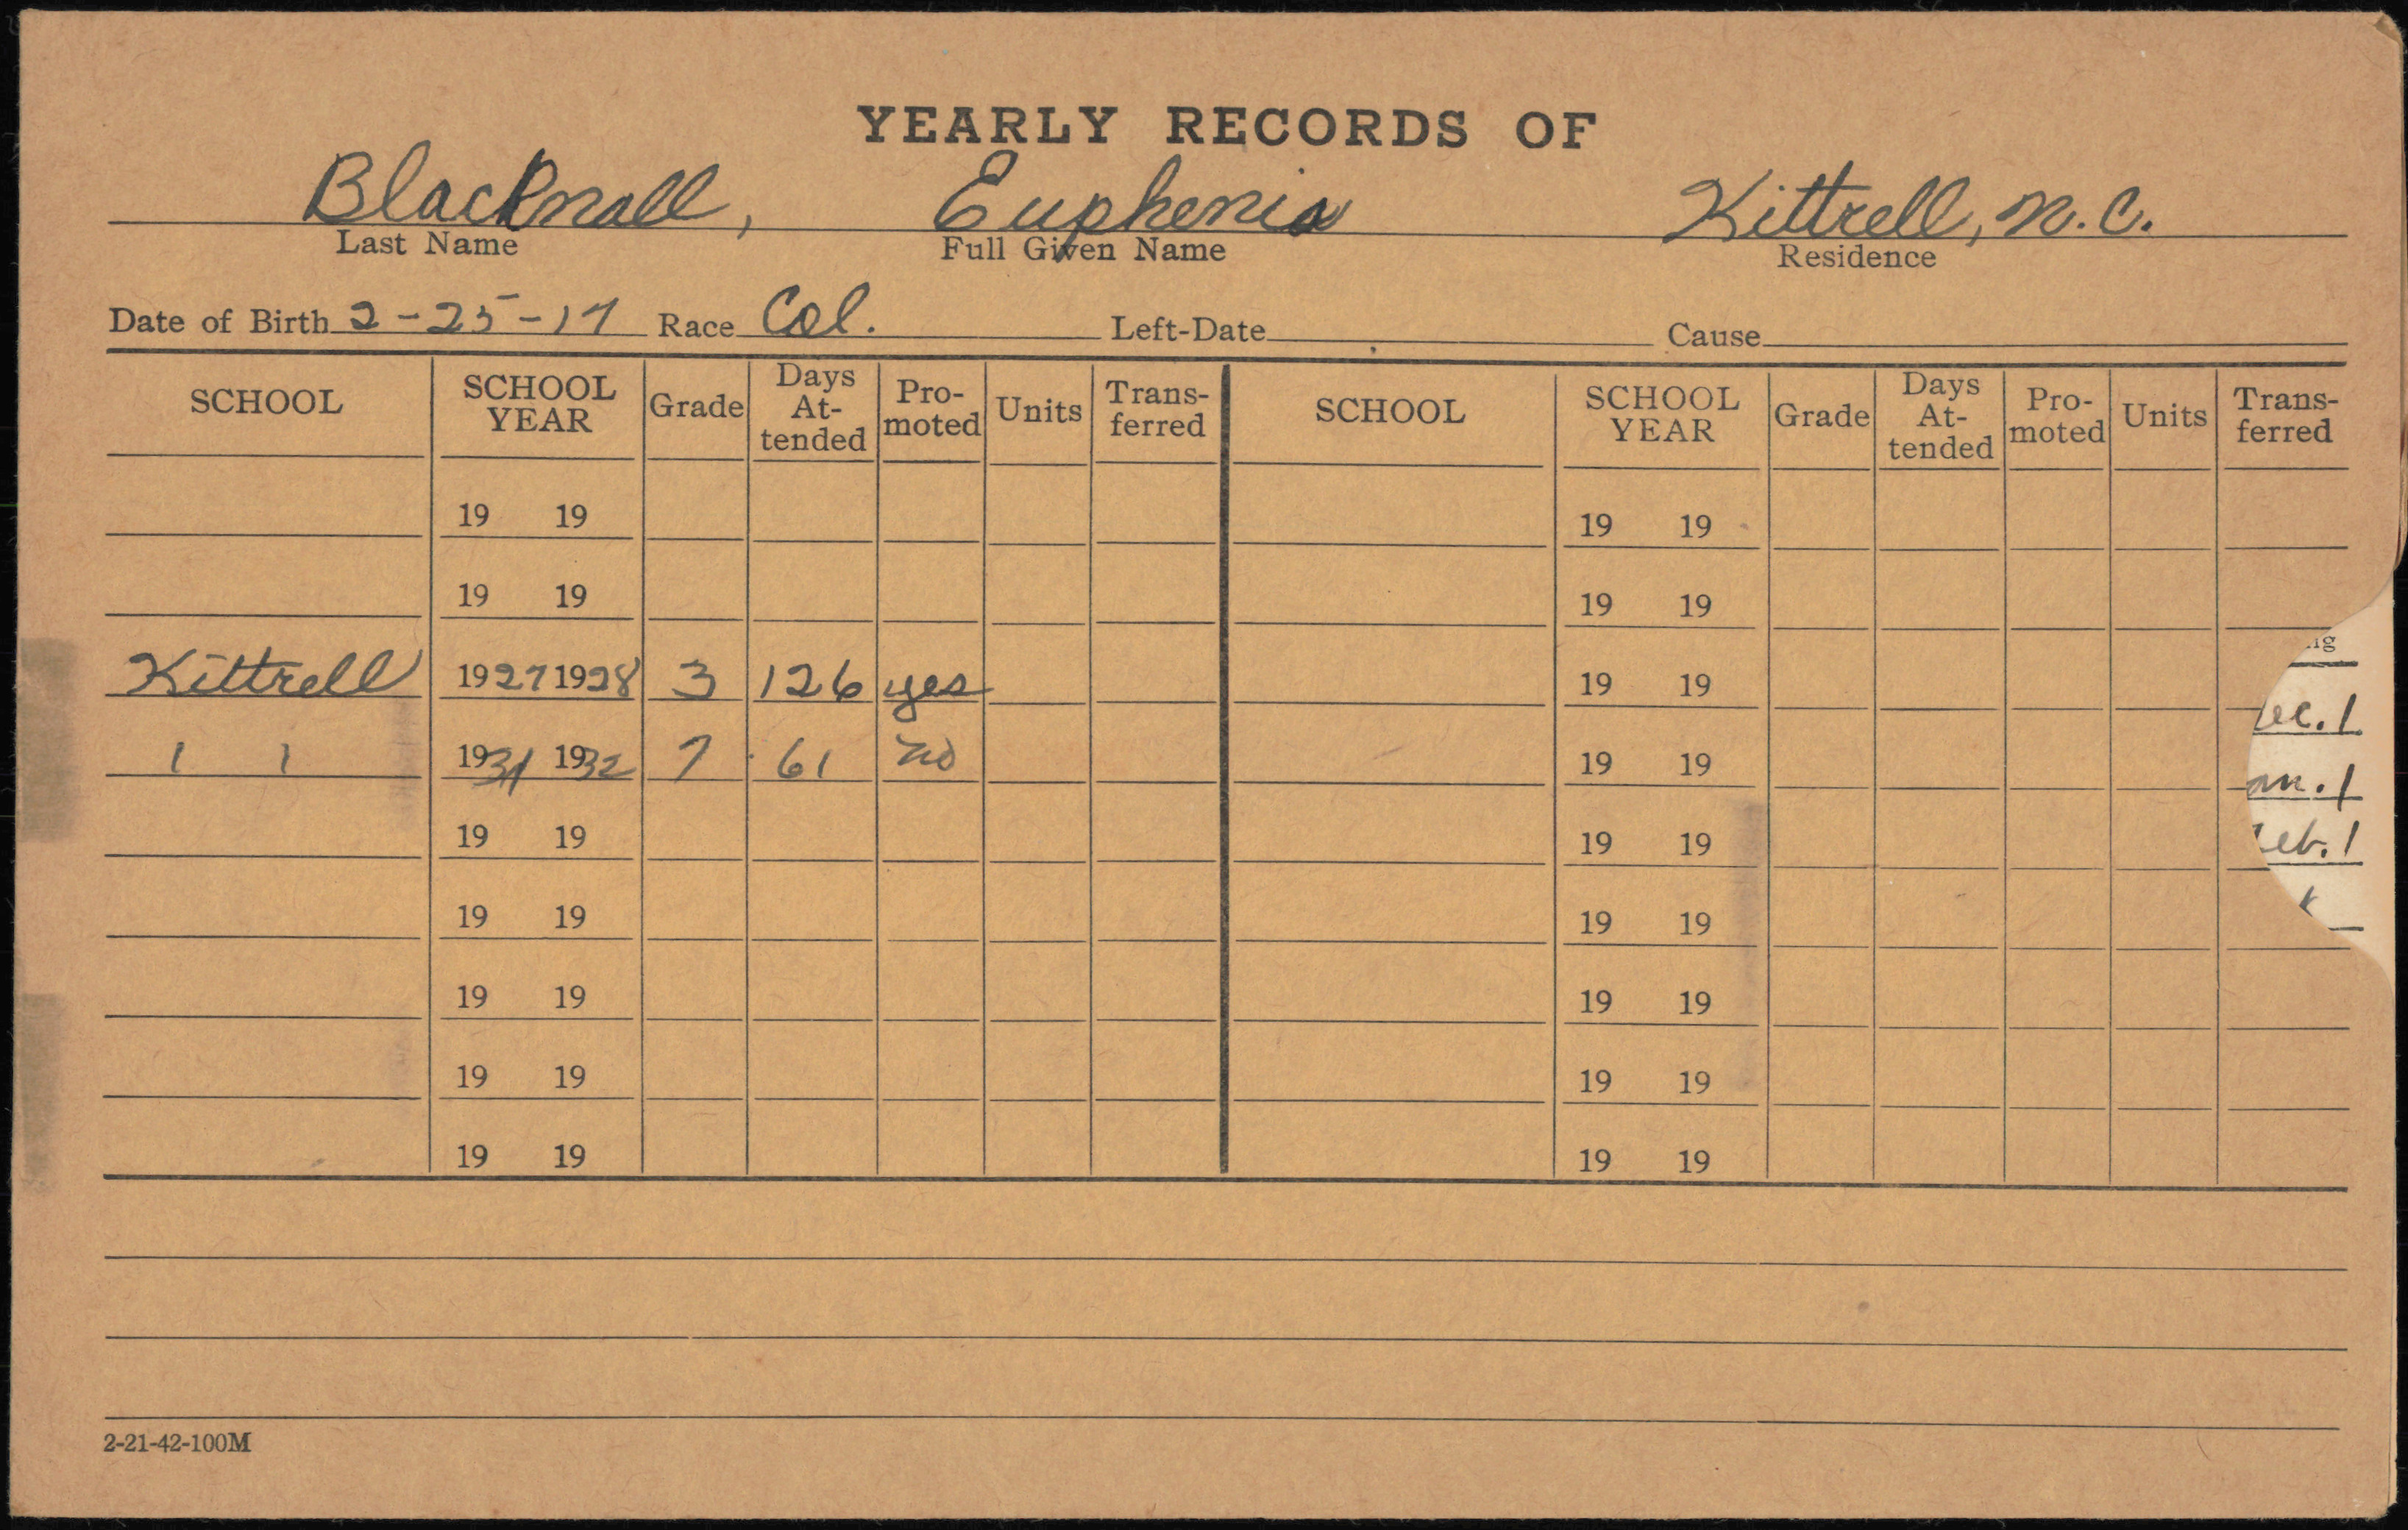 YEARLY RECORDS OF
Blacknall, Euphenia Kittrell, N.C.
Last Name Full Given Name Residence
Date of Birth 2-25-17 Race Col. Left-Date Cause
SCHOOL SCHOOL YEAR Grade Days At- tended Pro- moted Units Trans- ferred SCHOOL SCHOOL YEAR Grade Days At- tended Pro- moted Units Trans- ferred
19 19 19 19
19 19 19 19
Kittrell 1927 1928 3 126 yes 19 19
1 1 1931 1932 7 61 no 19 19
19 19 19 19
19 19 19 19
19 19 19 19
19 19 19 19
19 19 19 19
2-21-42-100M